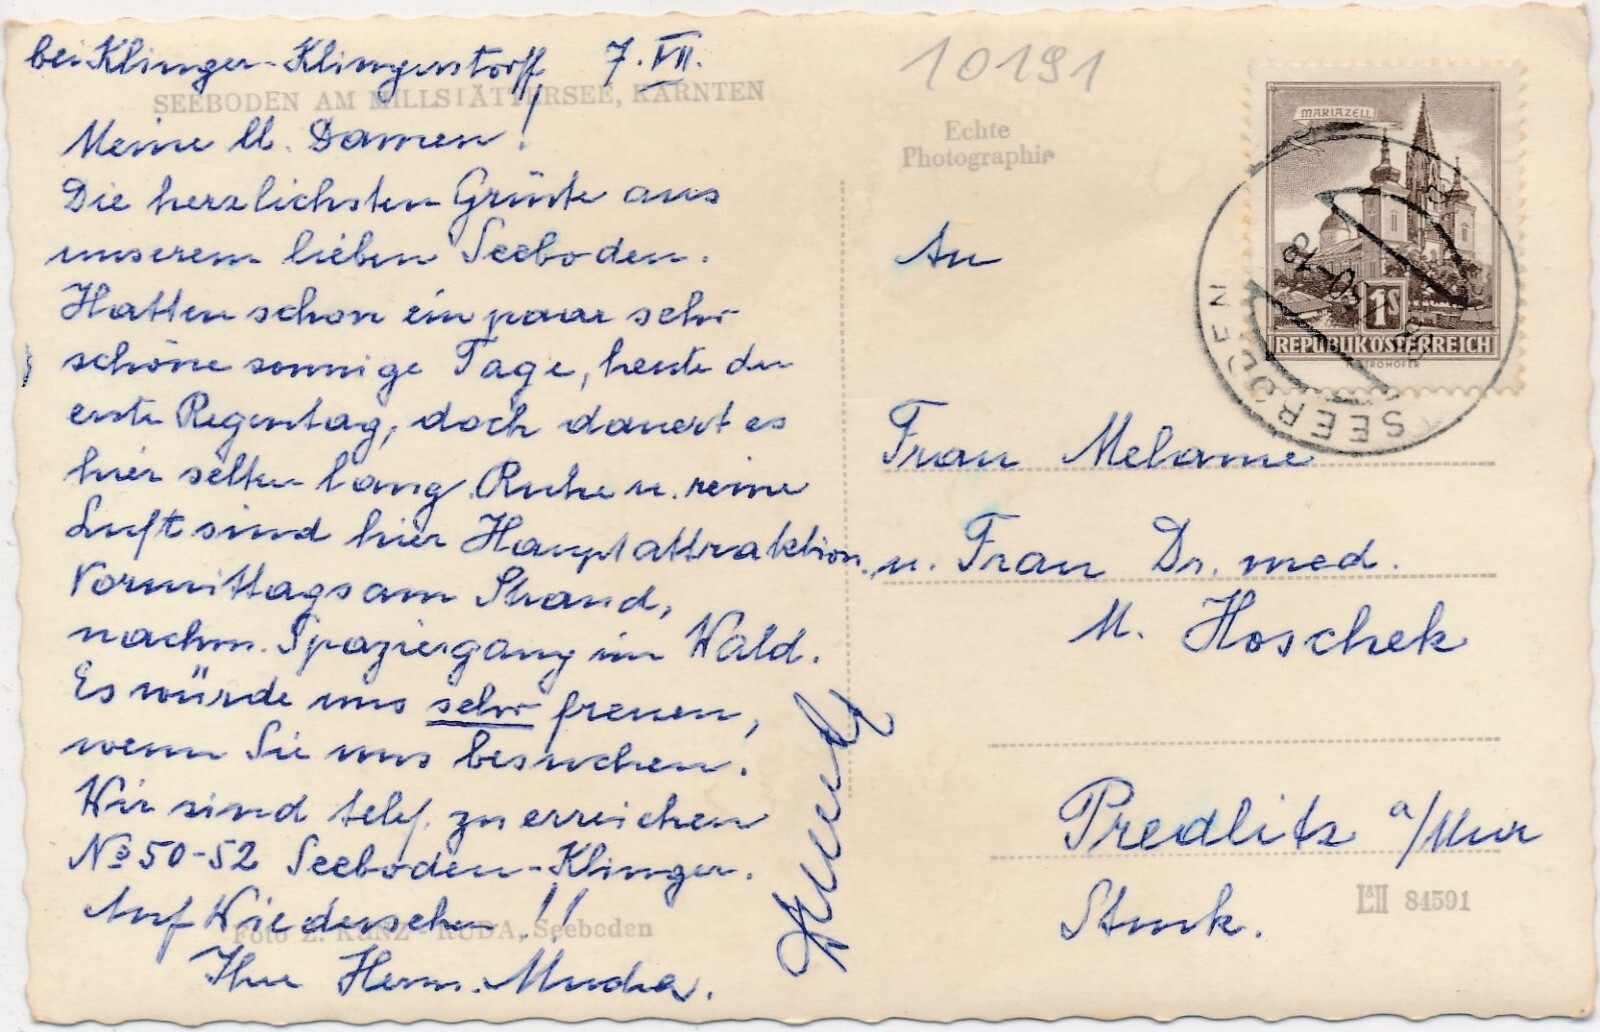 bei Klinger-Klingerstorff 7.VII.
SEEBODEN AM MILLSTÄTTERSEE, KÄRNTEN
Meine ll. Damen!
Die herzlichsten Grüße aus
unserem lieben Seeboden.
Hatten schon ein paar sehr
schöne sonnige Tage, heute der
erste Regentag, doch dauert es
hier selten lang. Ruhe u. reine
Luft sind hier Hauptattraktion.
Vormittags am Strand,
nachm. Spaziergang im Wald.
Es würde uns sehr freuen,
wenn Sie uns besuchen.
Wir sind telef. zu erreichen
No 50-52 Seeboden-Klinger.
Auf Wiedersehen!!
Foto E. KUNZ - RUDA, Seeboden
Ihre Herm.
10191
Echte
Photographie
MARIAZELL
1S
REPUBLIK ÖSTERREICH
SEEBODEN
An
Frau Melanie
u. Frau Dr. med.
M. Hoschek
Predlitz a/Mur
Stmk.
84591